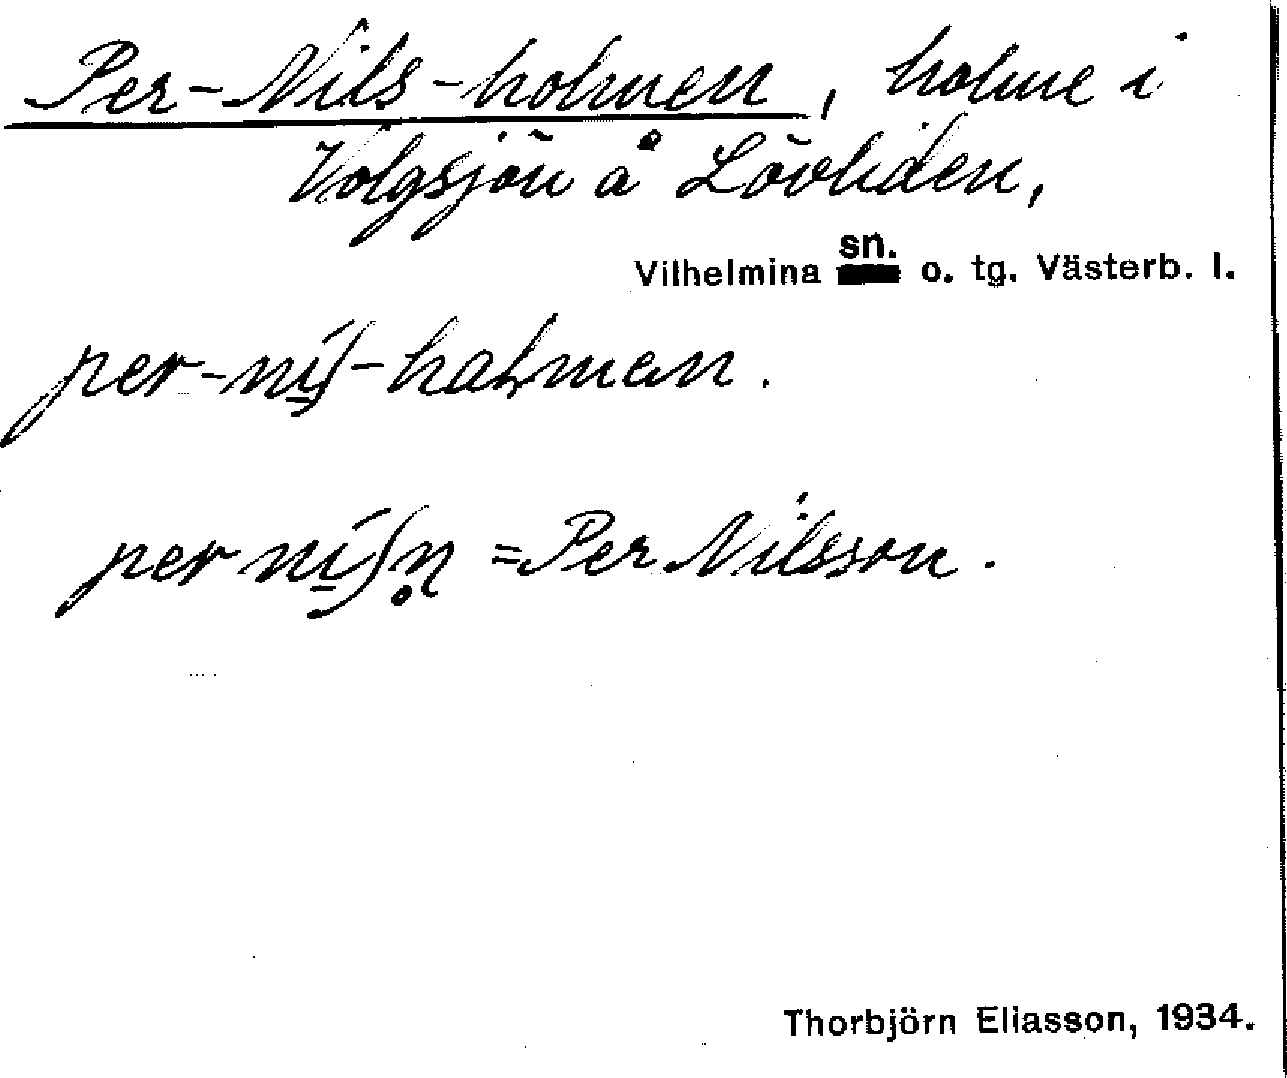 Per-Nils-holmen, holme i
Volgsjön å Lövliden,
Vilhelmina sn. o. tg. Västerb. l.
per-níʃ-haɫmen.
per níʃn̥ = Per Nilsson.
Thorbjörn Eliasson, 1934.